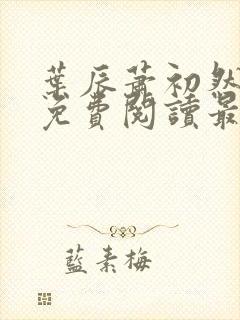 葉辰蕭初然
免費閱讀最
藍素梅